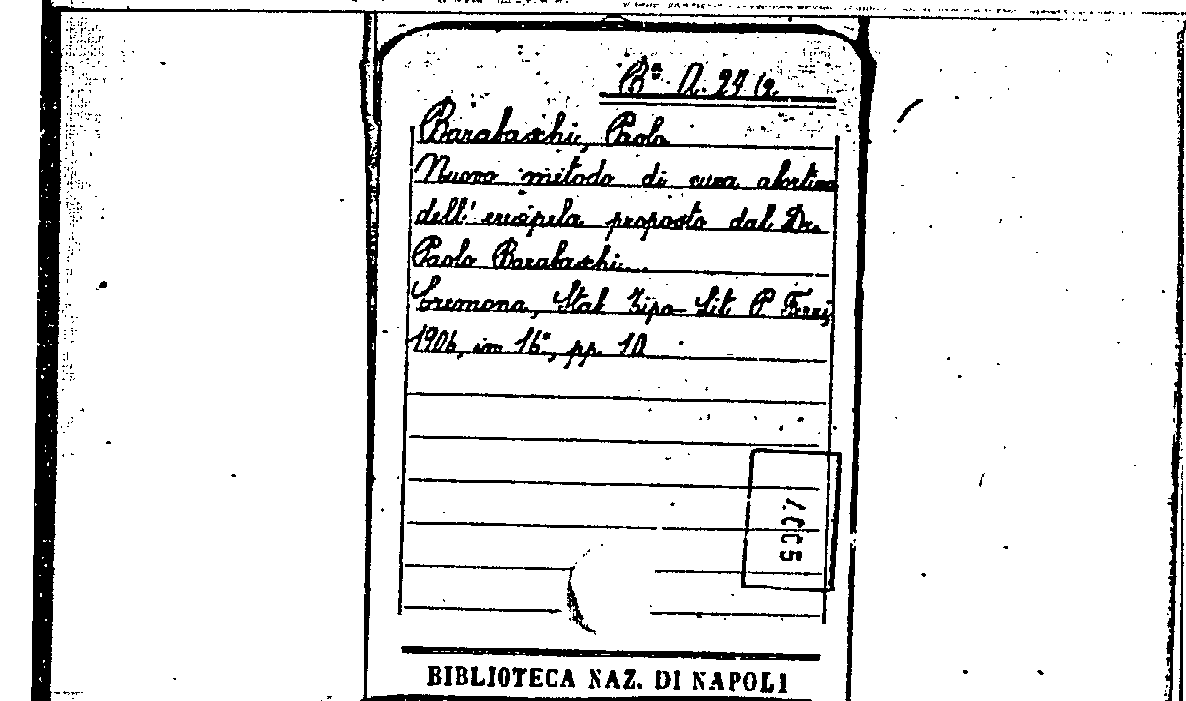 Ba A. 24 (2
Barabaschi, Paolo
Nuovo metodo di cura abortiva
dell'erisipela proposto dal Dr.
Paolo Barabaschi...
Cremona, Stab Tipo-Lit P Ferri,
1906, in 16°, pp. 10
BIBLIOTECA NAZ. DI NAPOLI